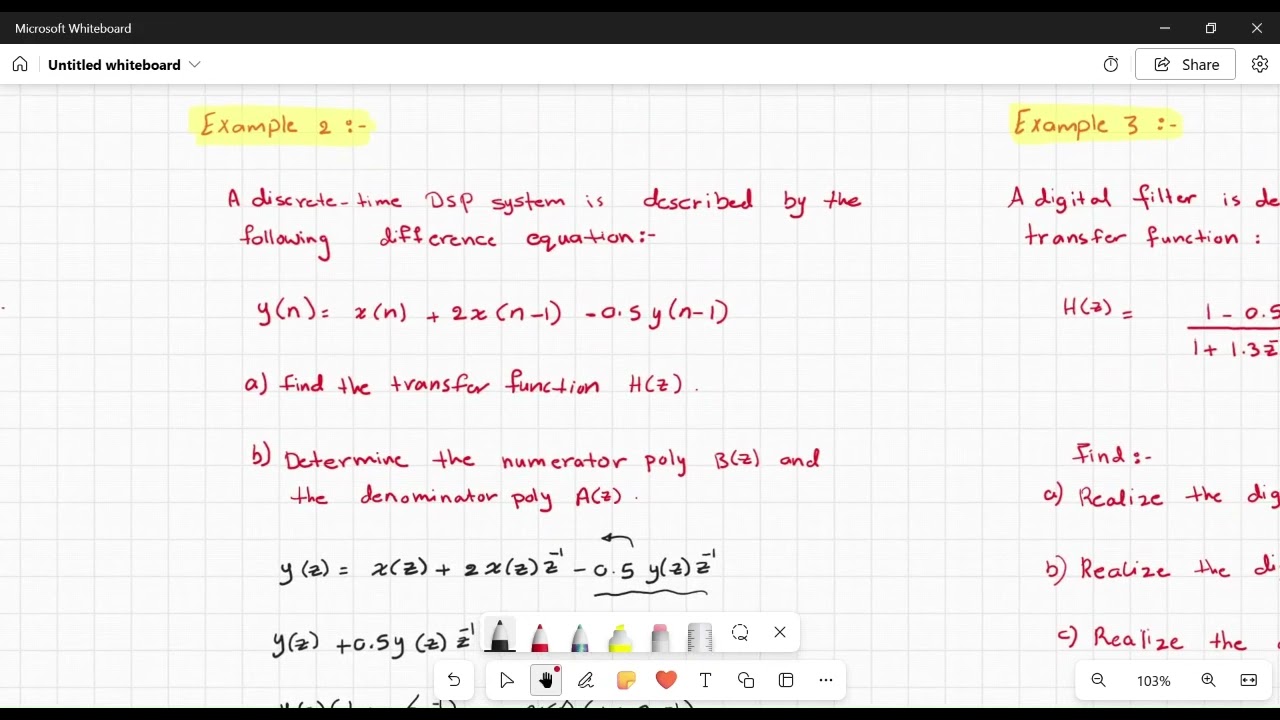 Microsoft Whiteboard
Untitled whiteboard
Share
Example 2 :-
A discrete-time DSP system is described by the
following difference equation:-
y(n)= x(n) + 2x(n-1) -0.5 y(n-1)
a) Find the transfer function H(z) .
b) Determine the numerator poly B(z) and
the denominator poly A(z) .
y(z) = x(z) + 2x(z)z⁻¹ - 0.5 y(z)z⁻¹
y(z) +0.5y(z) z⁻¹
Example 3 :-
A digital filter is de
transfer function :
H(z) =
1 - 0.5
1 + 1.3z
Find :-
a) Realize the dig
b) Realize the di
c) Realize the
103%